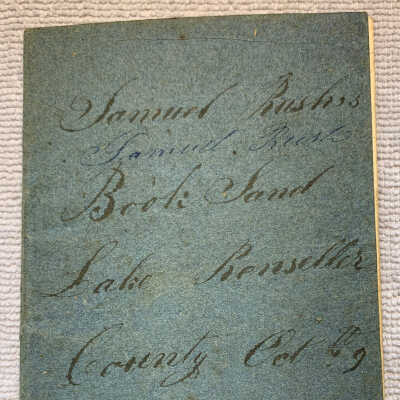 Samuel Rush's
Samuel Rush
Book Sand
Lake Renseller
County Oct 9